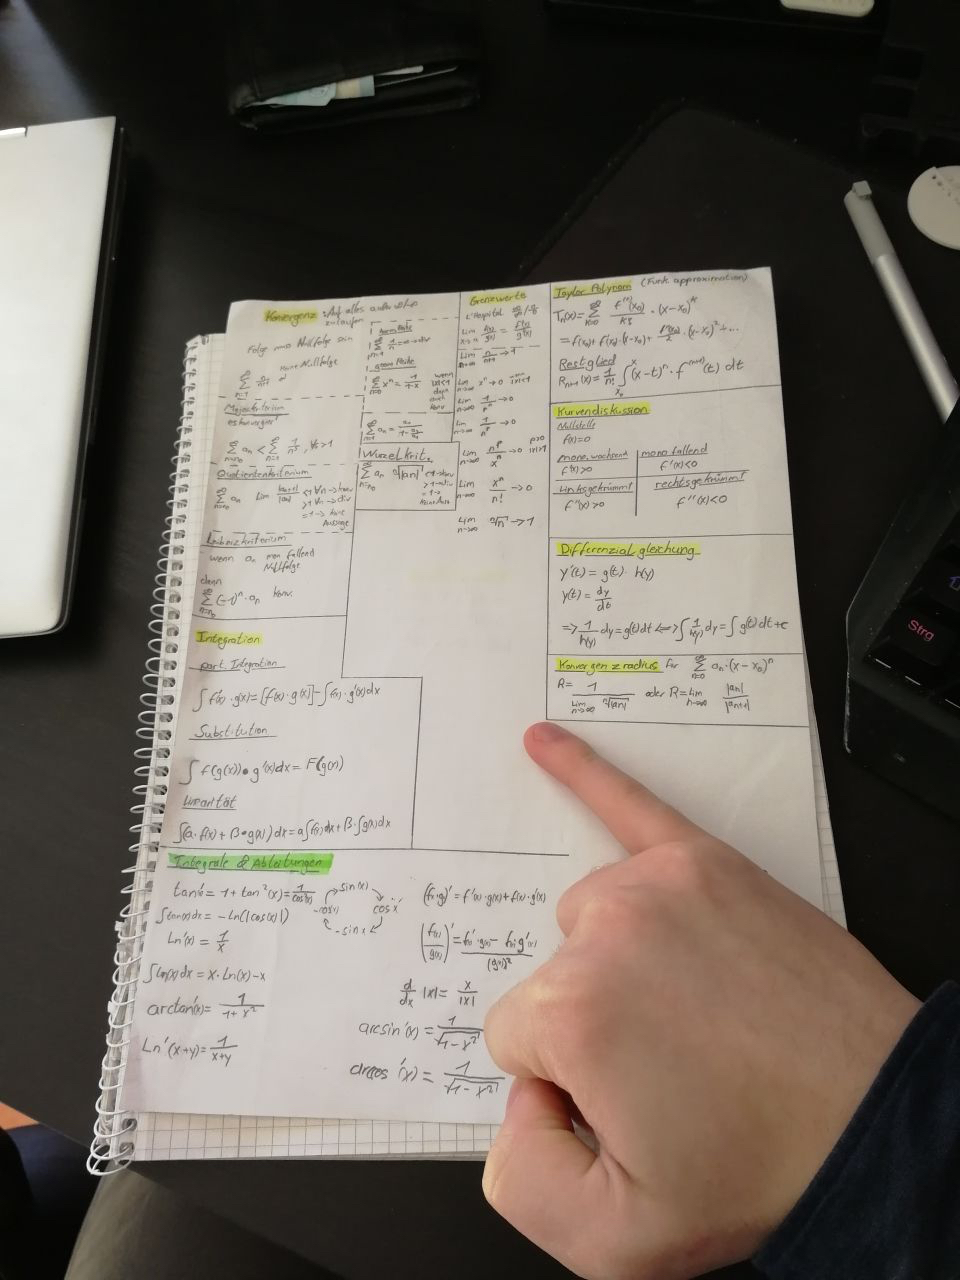 Konvergenz: Auf alles außer
zulaufen
Folge muss Nullfolge sein
keine Nullfolge
∑ n/n+1
n=1
Majorkriterium
∑ aₙ < ∑ 1/
Quotientenkriterium
∑ aₙ Lim |aₙ₊₁|/|aₙ| <1 ∀n → konv
>1 ∀n → div
=1 → keine
Aussage
Leibnizkriterium
wenn aₙ mon fallend
Nullfolge
dann
∑ (-1)ⁿ · aₙ konv.
n=n₀
∑ 1/n = ∞ → div
geom Reihe
∑ xⁿ = 1/1-x wenn
|x|<1
dann
auch
konv
Wurzelkrit.
∑ aₙ ⁿ√|aₙ| <1 → konv
>1 → div
=1 →
keine Auss
Grenzwerte
L'Hopital
Lim f(x)/g(x) = f'(x)/g'(x)
Lim n/n+1 → 1
Lim xⁿ → 0 |x|<1
Lim 1/ → 0
Lim 1/ → 0
Lim → 0 p>0
|x|>1
Lim xⁿ/n! → 0
Lim ⁿ√n → 1
n→∞
Taylor Polynom (Funk. approximation)
Tₙ(x) = ∑ f⁽ᵏ⁾(x₀)/k! · (x-x₀)ᵏ
= f(x₀) + f'(x₀)·(x-x₀) + f''(x₀)/2 · (x-x₀)² + ...
Restglied
Rₙ₊₁(x) = 1/n! ∫ (x-t)ⁿ · f⁽ⁿ⁺¹⁾(t) dt
Kurvendiskussion
Nullstelle
f(x)=0
mono. wachsend mono fallend
f'(x)>0 f'(x)<0
Linksgekrümmt rechtsgekrümmt
f''(x)>0 f''(x)<0
Differenzialgleichung
y'(t) = g(t) · h(y)
y(t) = dy/dt
=> 1/h(y) dy = g(t) dt <=> ∫ 1/h(y) dy = ∫ g(t) dt + c
Konvergenzradius für ∑ aₙ · (x-x₀)ⁿ
R = 1/Lim ⁿ√|aₙ| oder R = Lim |aₙ|/|aₙ₊₁|
n→∞ n→∞
Integration
part. Integration
∫ f'(x) · g(x) = [f(x) · g(x)] - ∫ f(x) · g'(x) dx
Substitution
∫ f(g(x)) • g'(x) dx = F(g(x))
Linearität
∫(a · f(x) + β • g(x)) dx = a ∫ f(x) dx + β · ∫ g(x) dx
Integrale & Ableitungen
tan'x = 1 + tan²(x) = 1/cos²(x)
sin(x)
cos x
-sin x
-cos(x)
∫ tan(x) dx = -Ln(|cos(x)|)
Ln'(x) = 1/x
∫ Ln(x) dx = x · Ln(x) - x
arctan'(x) = 1/1+x²
Ln'(x+y) = 1/x+y
(f · g)' = f'(x) · g(x) + f(x) · g'(x)
(f(x)/g(x))' = f'(x) · g(x) - f(x) g'(x)/(g(x))²
d/dx |x| = x/|x|
arcsin'(x) = 1/√1-x²
arccos'(x) = 1/√1-x²
Strg